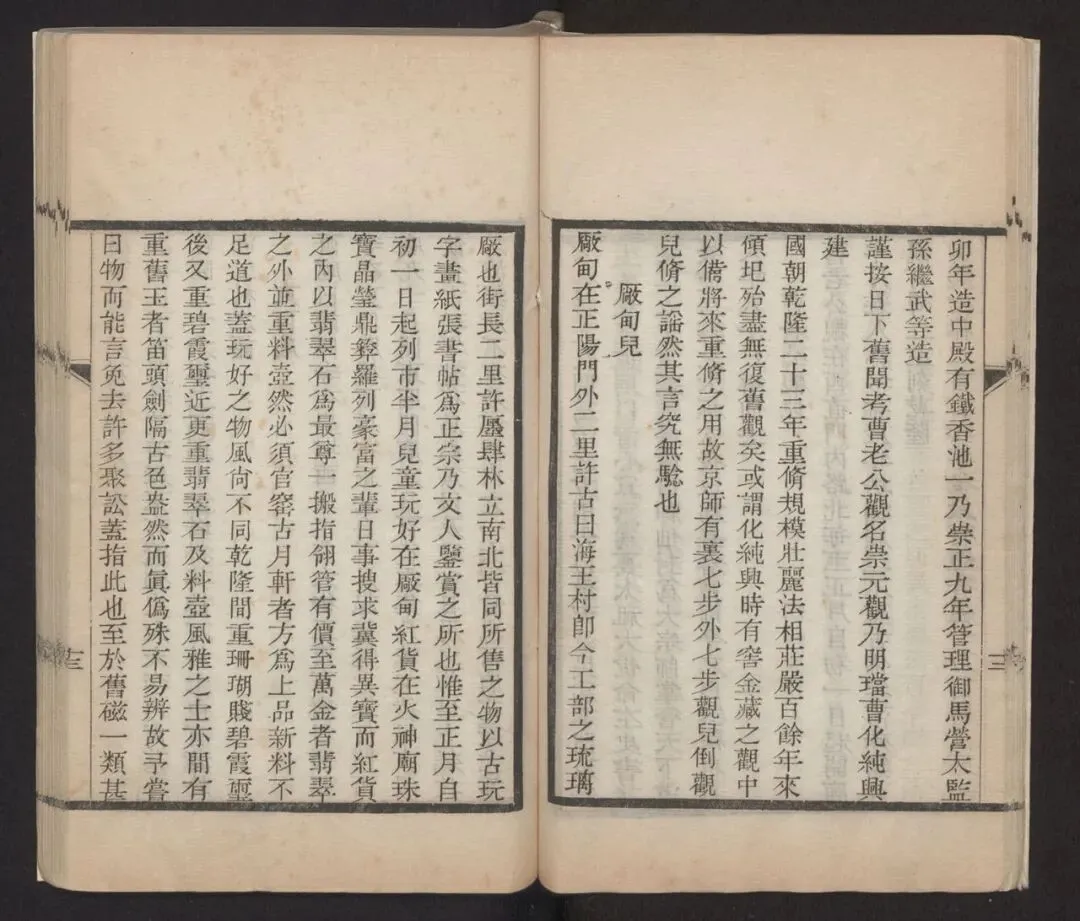 卯年造中殿有鐵香池一乃崇正九年管理御馬營太監
孫繼武等造
謹按日下舊聞考曹老公觀名崇元觀乃明璫曹化純興
建
國朝乾隆二十三年重脩規模壯麗法相莊嚴百餘年來
傾圮殆盡無復舊觀矣或謂化純興時有窖金藏之觀中
以備將來重脩之用故京師有裏七步外七步觀兒倒觀
兒脩之謠然其言究無驗也
廠甸兒
廠甸在正陽門外二里許古曰海王村卽今工部之琉璃
廠也街長二里許廛肆林立南北皆同所售之物以古玩
字畫紙張書帖爲正宗乃文人鑒賞之所也惟至正月自
初一日起列市半月兒童玩好在廠甸紅貨在火神廟珠
寶晶瑩鼎彝羅列豪富之輩日事搜求冀得異寶而紅貨
之內以翡翠石爲最尊一搬指翎管有價至萬金者翡翠
之外並重料壺然必須官窰古月軒者方爲上品新料不
足道也蓋玩好之物風尙不同乾隆間重珊瑚賤碧霞璽
後又重碧霞璽近更重翡翠石及料壺風雅之士亦間有
重舊玉者笛頭劍隔古色盎然而眞僞殊不易辨故予嘗
曰物而能言免去許多聚訟蓋指此也至於舊磁一類甚